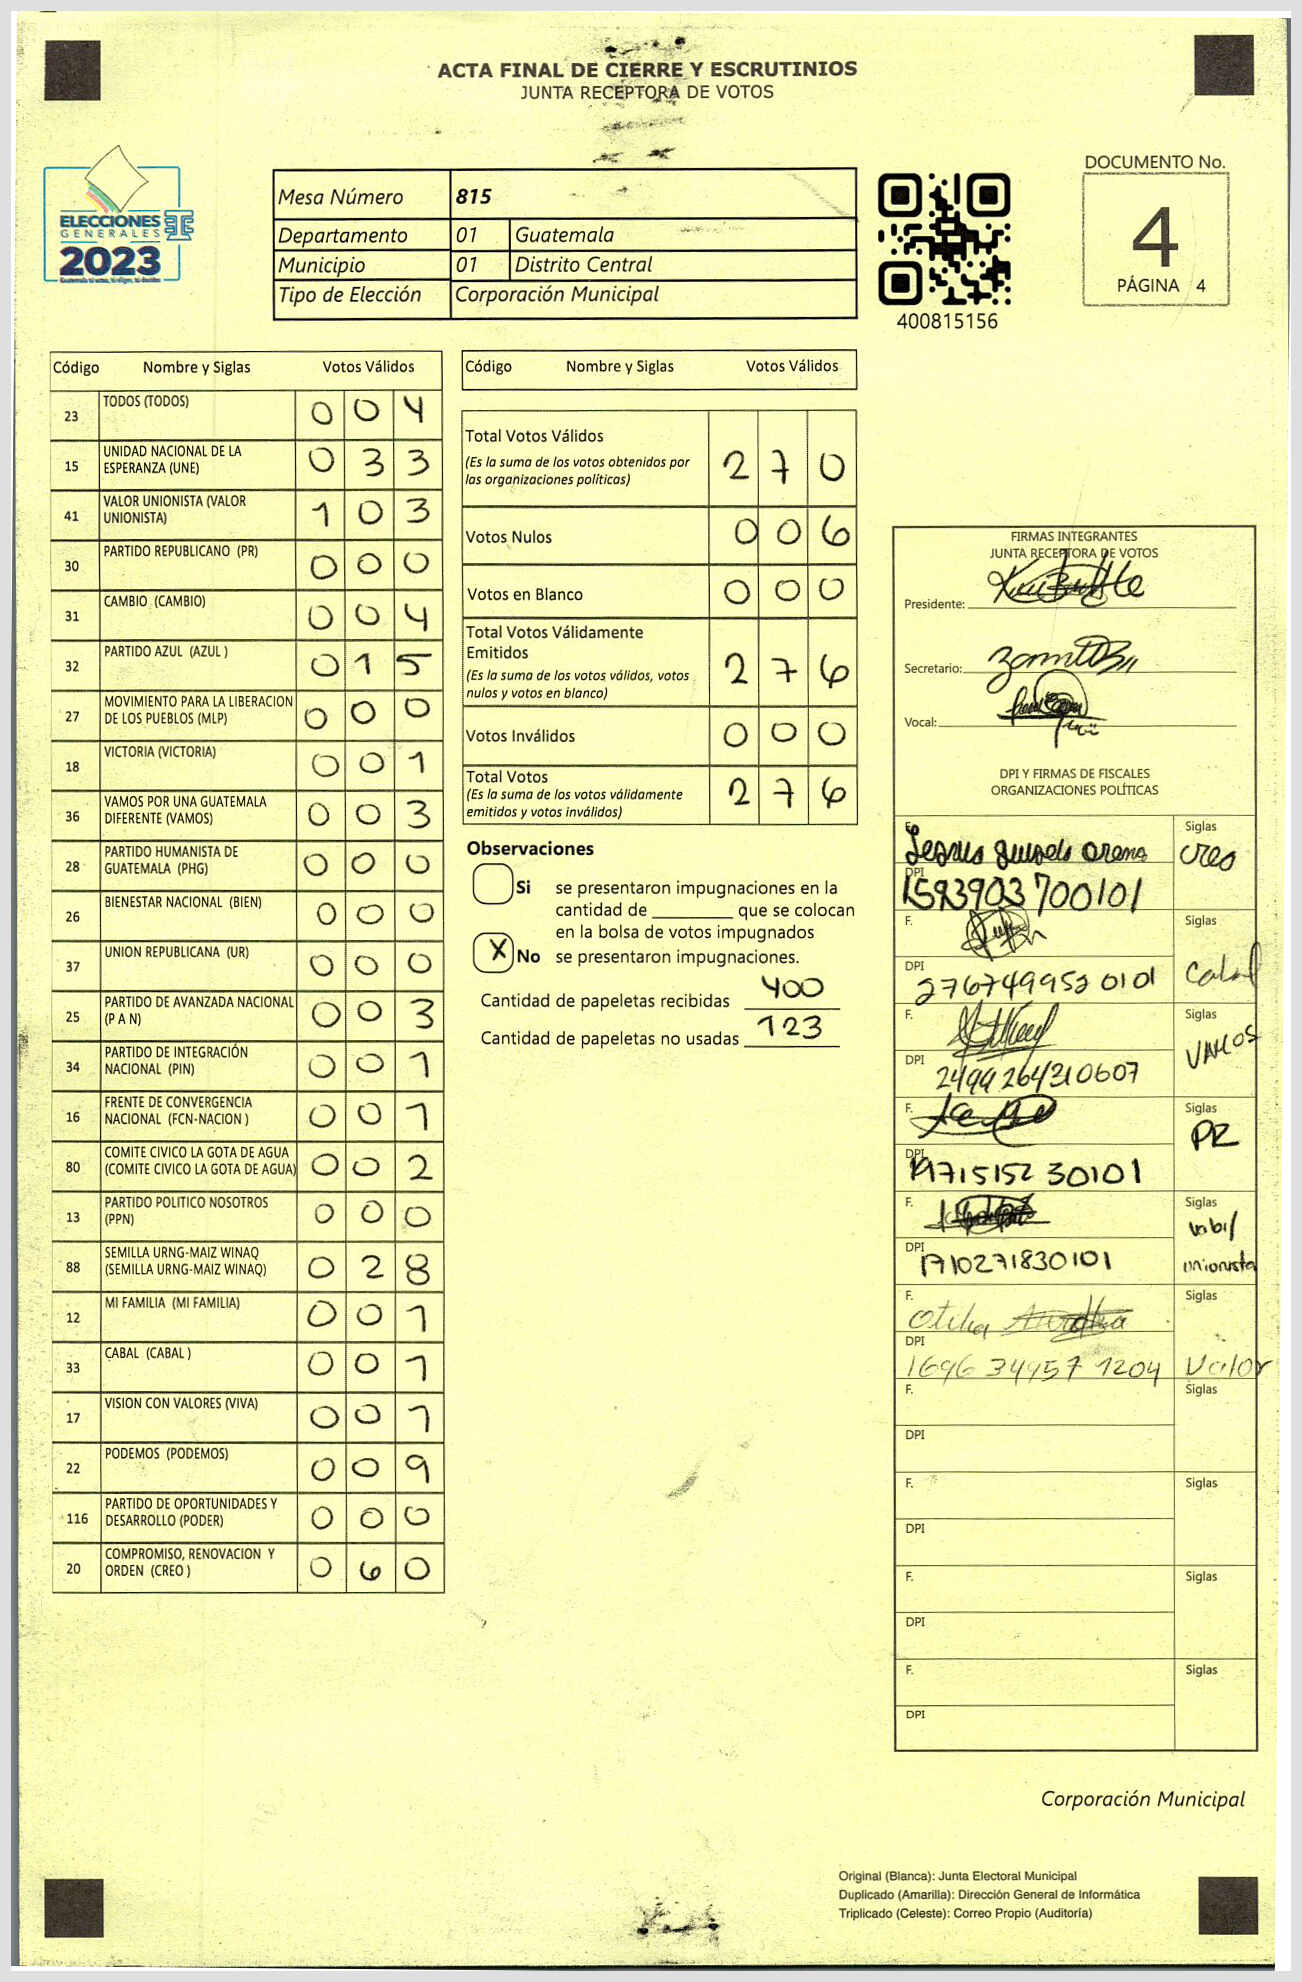 ACTA FINAL DE CIERRE Y ESCRUTINIOS
JUNTA RECEPTORA DE VOTOS
ELECCIONES
GENERALES
2023
Mesa Número 815
Departamento 01 Guatemala
Municipio 01 Distrito Central
Tipo de Elección Corporación Municipal
400815156
DOCUMENTO No.
4
PÁGINA 4
Código Nombre y Siglas Votos Válidos
23 TODOS (TODOS) 0 0 4
15 UNIDAD NACIONAL DE LA ESPERANZA (UNE) 0 3 3
41 VALOR UNIONISTA (VALOR UNIONISTA) 1 0 3
30 PARTIDO REPUBLICANO (PR) 0 0 0
31 CAMBIO (CAMBIO) 0 0 4
32 PARTIDO AZUL (AZUL ) 0 1 5
27 MOVIMIENTO PARA LA LIBERACION DE LOS PUEBLOS (MLP) 0 0 0
18 VICTORIA (VICTORIA) 0 0 1
36 VAMOS POR UNA GUATEMALA DIFERENTE (VAMOS) 0 0 3
28 PARTIDO HUMANISTA DE GUATEMALA (PHG) 0 0 0
26 BIENESTAR NACIONAL (BIEN) 0 0 0
37 UNION REPUBLICANA (UR) 0 0 0
25 PARTIDO DE AVANZADA NACIONAL (P A N) 0 0 3
34 PARTIDO DE INTEGRACIÓN NACIONAL (PIN) 0 0 1
16 FRENTE DE CONVERGENCIA NACIONAL (FCN-NACION ) 0 0 1
80 COMITE CIVICO LA GOTA DE AGUA (COMITE CIVICO LA GOTA DE AGUA) 0 0 2
13 PARTIDO POLITICO NOSOTROS (PPN) 0 0 0
88 SEMILLA URNG-MAIZ WINAQ (SEMILLA URNG-MAIZ WINAQ) 0 2 8
12 MI FAMILIA (MI FAMILIA) 0 0 1
33 CABAL (CABAL ) 0 0 1
17 VISION CON VALORES (VIVA) 0 0 1
22 PODEMOS (PODEMOS) 0 0 9
116 PARTIDO DE OPORTUNIDADES Y DESARROLLO (PODER) 0 0 0
20 COMPROMISO, RENOVACION Y ORDEN (CREO ) 0 6 0
Código Nombre y Siglas Votos Válidos
Total Votos Válidos 2 7 0
(Es la suma de los votos obtenidos por
las organizaciones políticas)
Votos Nulos 0 0 6
Votos en Blanco 0 0 0
Total Votos Válidamente
Emitidos 2 7 6
(Es la suma de los votos válidos, votos
nulos y votos en blanco)
Votos Inválidos 0 0 0
Total Votos 2 7 6
(Es la suma de los votos válidamente
emitidos y votos inválidos)
Observaciones
Si se presentaron impugnaciones en la
cantidad de ________ que se colocan
en la bolsa de votos impugnados
X No se presentaron impugnaciones.
Cantidad de papeletas recibidas 400
Cantidad de papeletas no usadas 123
FIRMAS INTEGRANTES
JUNTA RECEPTORA DE VOTOS
Presidente:
Secretario:
Vocal:
DPI Y FIRMAS DE FISCALES
ORGANIZACIONES POLÍTICAS
F. Siglas Creo
DPI 1593903700101
F. Siglas Cabal
DPI 2767499520101
F. Siglas VAMOS
DPI 2499264310607
F. Siglas PR
DPI 1971515230101
F. Siglas unionista
DPI 1710271830101
F. Otilia Siglas Valor
DPI 1696 34957 1204
F. Siglas
DPI
F. Siglas
DPI
F. Siglas
DPI
F. Siglas
DPI
Corporación Municipal
Original (Blanca): Junta Electoral Municipal
Duplicado (Amarilla): Dirección General de Informática
Triplicado (Celeste): Correo Propio (Auditoría)